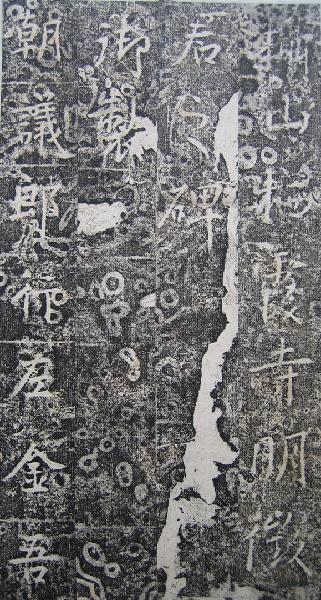 攝山栖霞寺明徵
君之碑
御製
朝議郎行左金吾